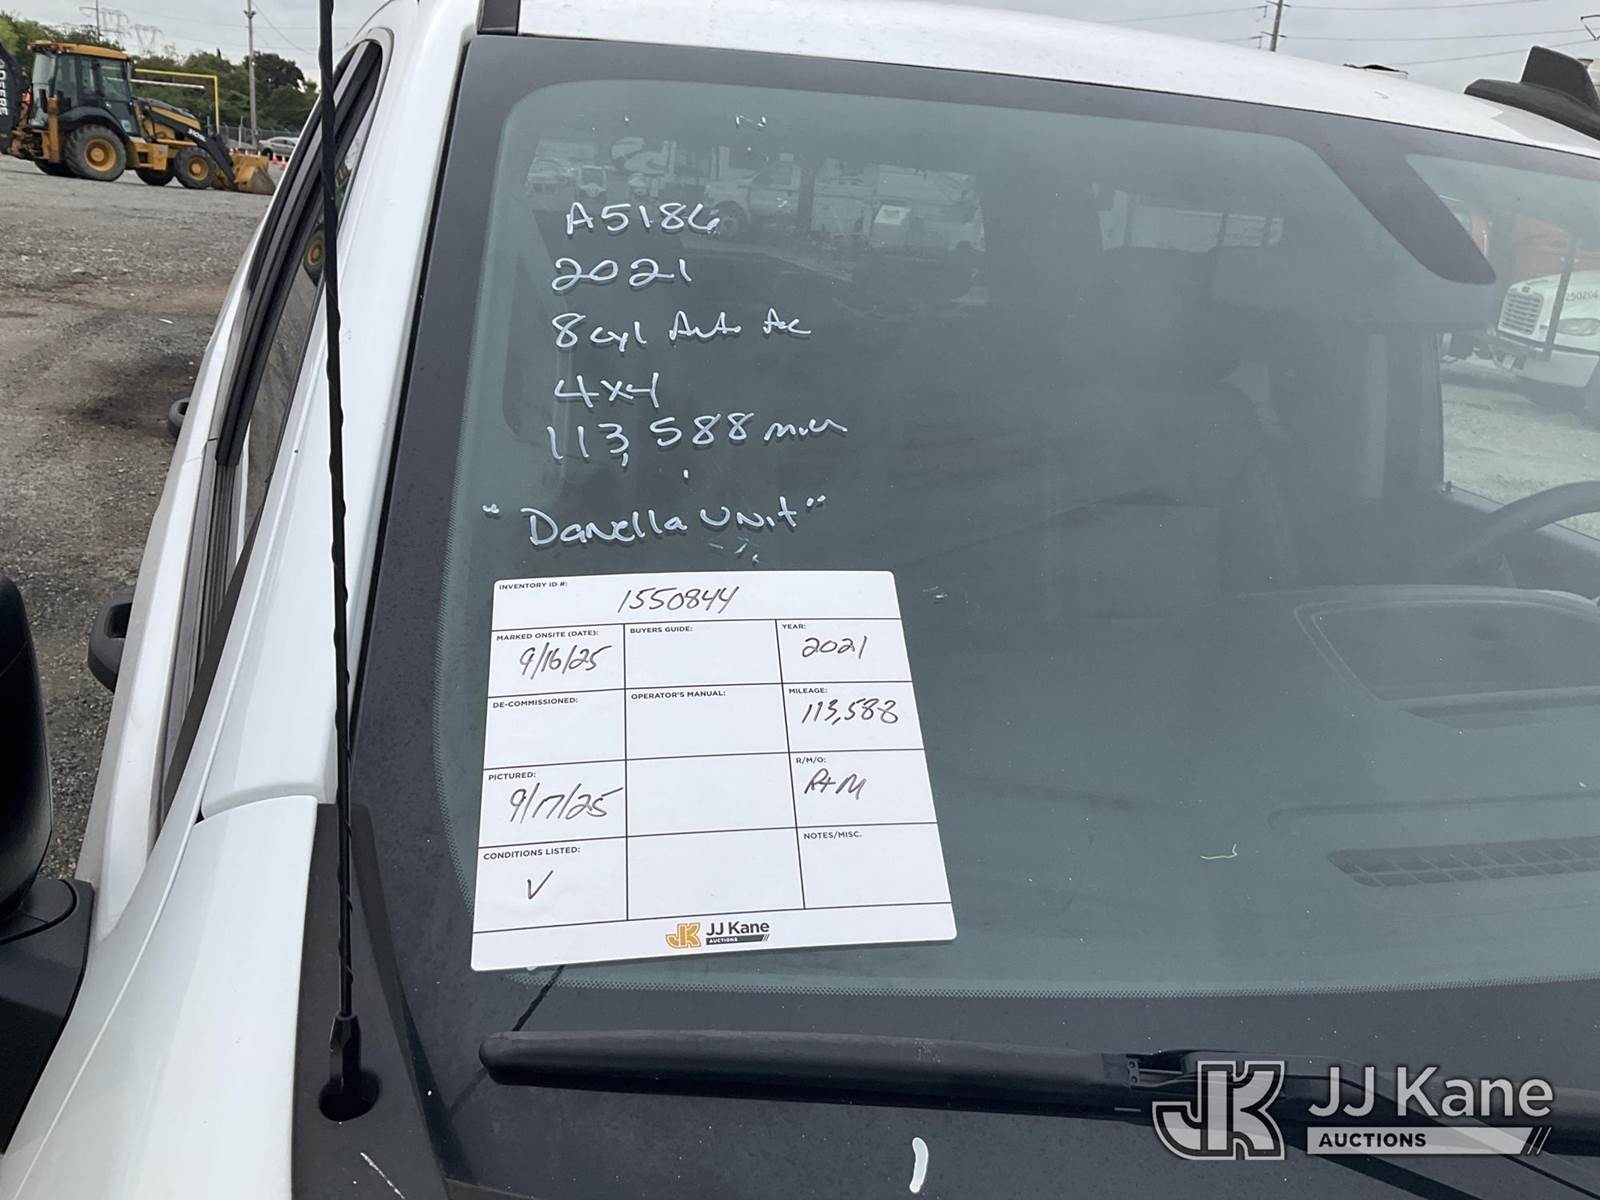 DEERE
310SL
A5186
2021
8cyl Auto Ac
4x4
113,588 miles
"Danella Unit"
INVENTORY ID #:
1550844
MARKED ONSITE (DATE):
9/16/25
BUYERS GUIDE:
YEAR:
2021
DE-COMMISSIONED:
OPERATOR'S MANUAL:
MILEAGE:
113,588
PICTURED:
9/17/25
R/M/O:
R+M
CONDITIONS LISTED:
√
NOTES/MISC.
JK JJ Kane
AUCTIONS
JK JJ Kane
AUCTIONS